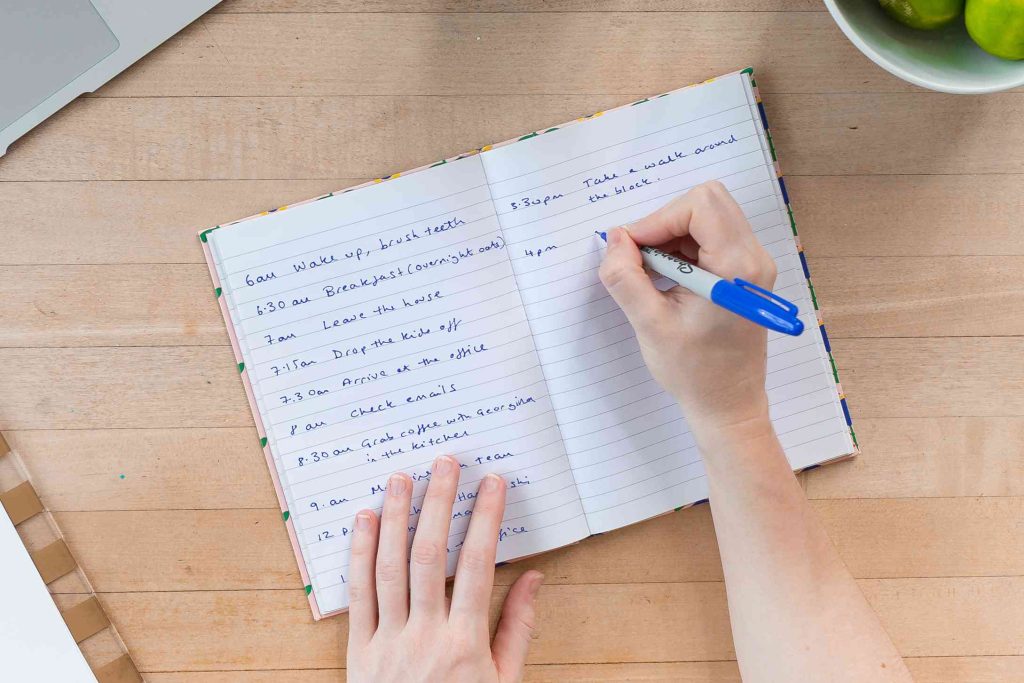 6am Wake up, brush teeth
6.30 am Breakfast (overnight oats)
7am Leave the house
7.15am Drop the kids off
7.30am Arrive at the office
8 am Check emails
8.30am Grab coffee with Georgina
in the kitchen
9.am team
12 p
3.30pm Take a walk around
the block.
4pm